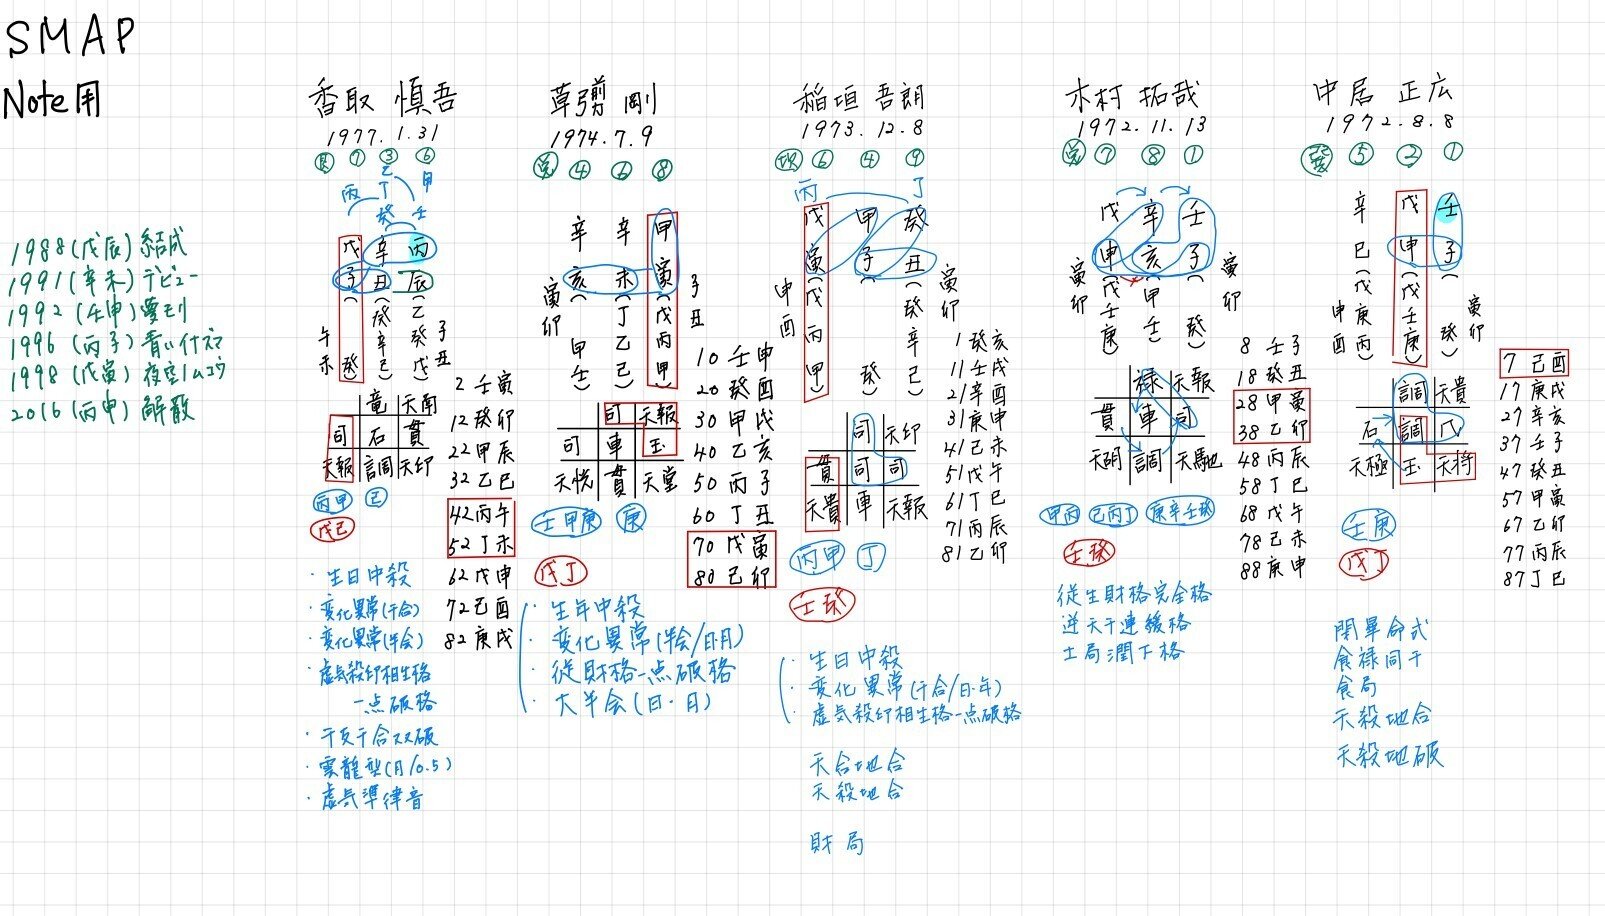 SMAP
Note用
1988(戊辰)結成
1991(辛未)デビュー
1992(壬申)夢モリ
1996(丙子)青いイナズマ
1998(戊寅)夜空ノムコウ
2016(丙申)解散
香取 慎吾
1977.1.31
⑦ ③ ⑥
乙
丙 丁 甲
癸 壬
戊 辛 丙
子 丑 辰
(癸) (癸辛己) (乙癸戊)
午未
子丑
竜 天南
司 石 貫
天報 調 天印
丙甲 己
戊己
2 壬寅
12 癸卯
22 甲辰
32 乙巳
42 丙午
52 丁未
62 戊申
72 己酉
82 庚戌
・生日中殺
・変化異常(干合)
・変化異常(半会)
・虚気殺印相生格
一点破格
・干支干合双破
・雲龍型(月/0.5)
・虚気準律音
草彅 剛
1974.7.9
④ ⑥ ⑧
辛 辛 甲
亥 未 寅
(甲壬) (丁乙己) (戊丙甲)
寅卯
子丑
司 天報
司 車 玉
天恍 貫 天堂
壬甲庚 庚
戊丁
10 壬申
20 癸酉
30 甲戌
40 乙亥
50 丙子
60 丁丑
70 戊寅
80 己卯
・生年中殺
・変化異常(半会/日月)
・従財格一点破格
・大半会(日・月)
稲垣 吾朗
1973.12.8
坎 ⑥ ④ ⑨
丙 丁
戊 甲 癸
寅 子 丑
(戊丙甲) (癸) (癸辛己)
申酉
寅卯
司 天印
貫 司 司
天貴 車 天報
丙甲 丁
壬癸
1 癸亥
11 壬戌
21 辛酉
31 庚申
41 己未
51 戊午
61 丁巳
71 丙辰
81 乙卯
・生日中殺
・変化異常(干合/日・年)
・虚気殺印相生格一点破格
天合地合
天殺地合
財局
木村 拓哉
1972.11.13
⑦ ⑧ ①
戊 辛 壬
申 亥 子
(戊壬庚) (甲壬) (癸)
寅卯
寅卯
禄 天報
貫 車 司
天胡 調 天馳
甲丙 己丙丁 庚辛壬癸
壬癸
8 壬子
18 癸丑
28 甲寅
38 乙卯
48 丙辰
58 丁巳
68 戊午
78 己未
88 庚申
従生財格完全格
逆天干連綴格
土局潤下格
中居 正広
1972.8.8
⑤ ② ①
辛 戊 壬
巳 申 子
(戊庚丙) (戊壬庚) (癸)
申酉
寅卯
調 天貴
石 調 司
天極 玉 天将
壬庚
戊丁
7 己酉
17 庚戌
27 辛亥
37 壬子
47 癸丑
57 甲寅
67 乙卯
77 丙辰
87 丁巳
閉畢命式
食禄同干
食局
天殺地合
天殺地破